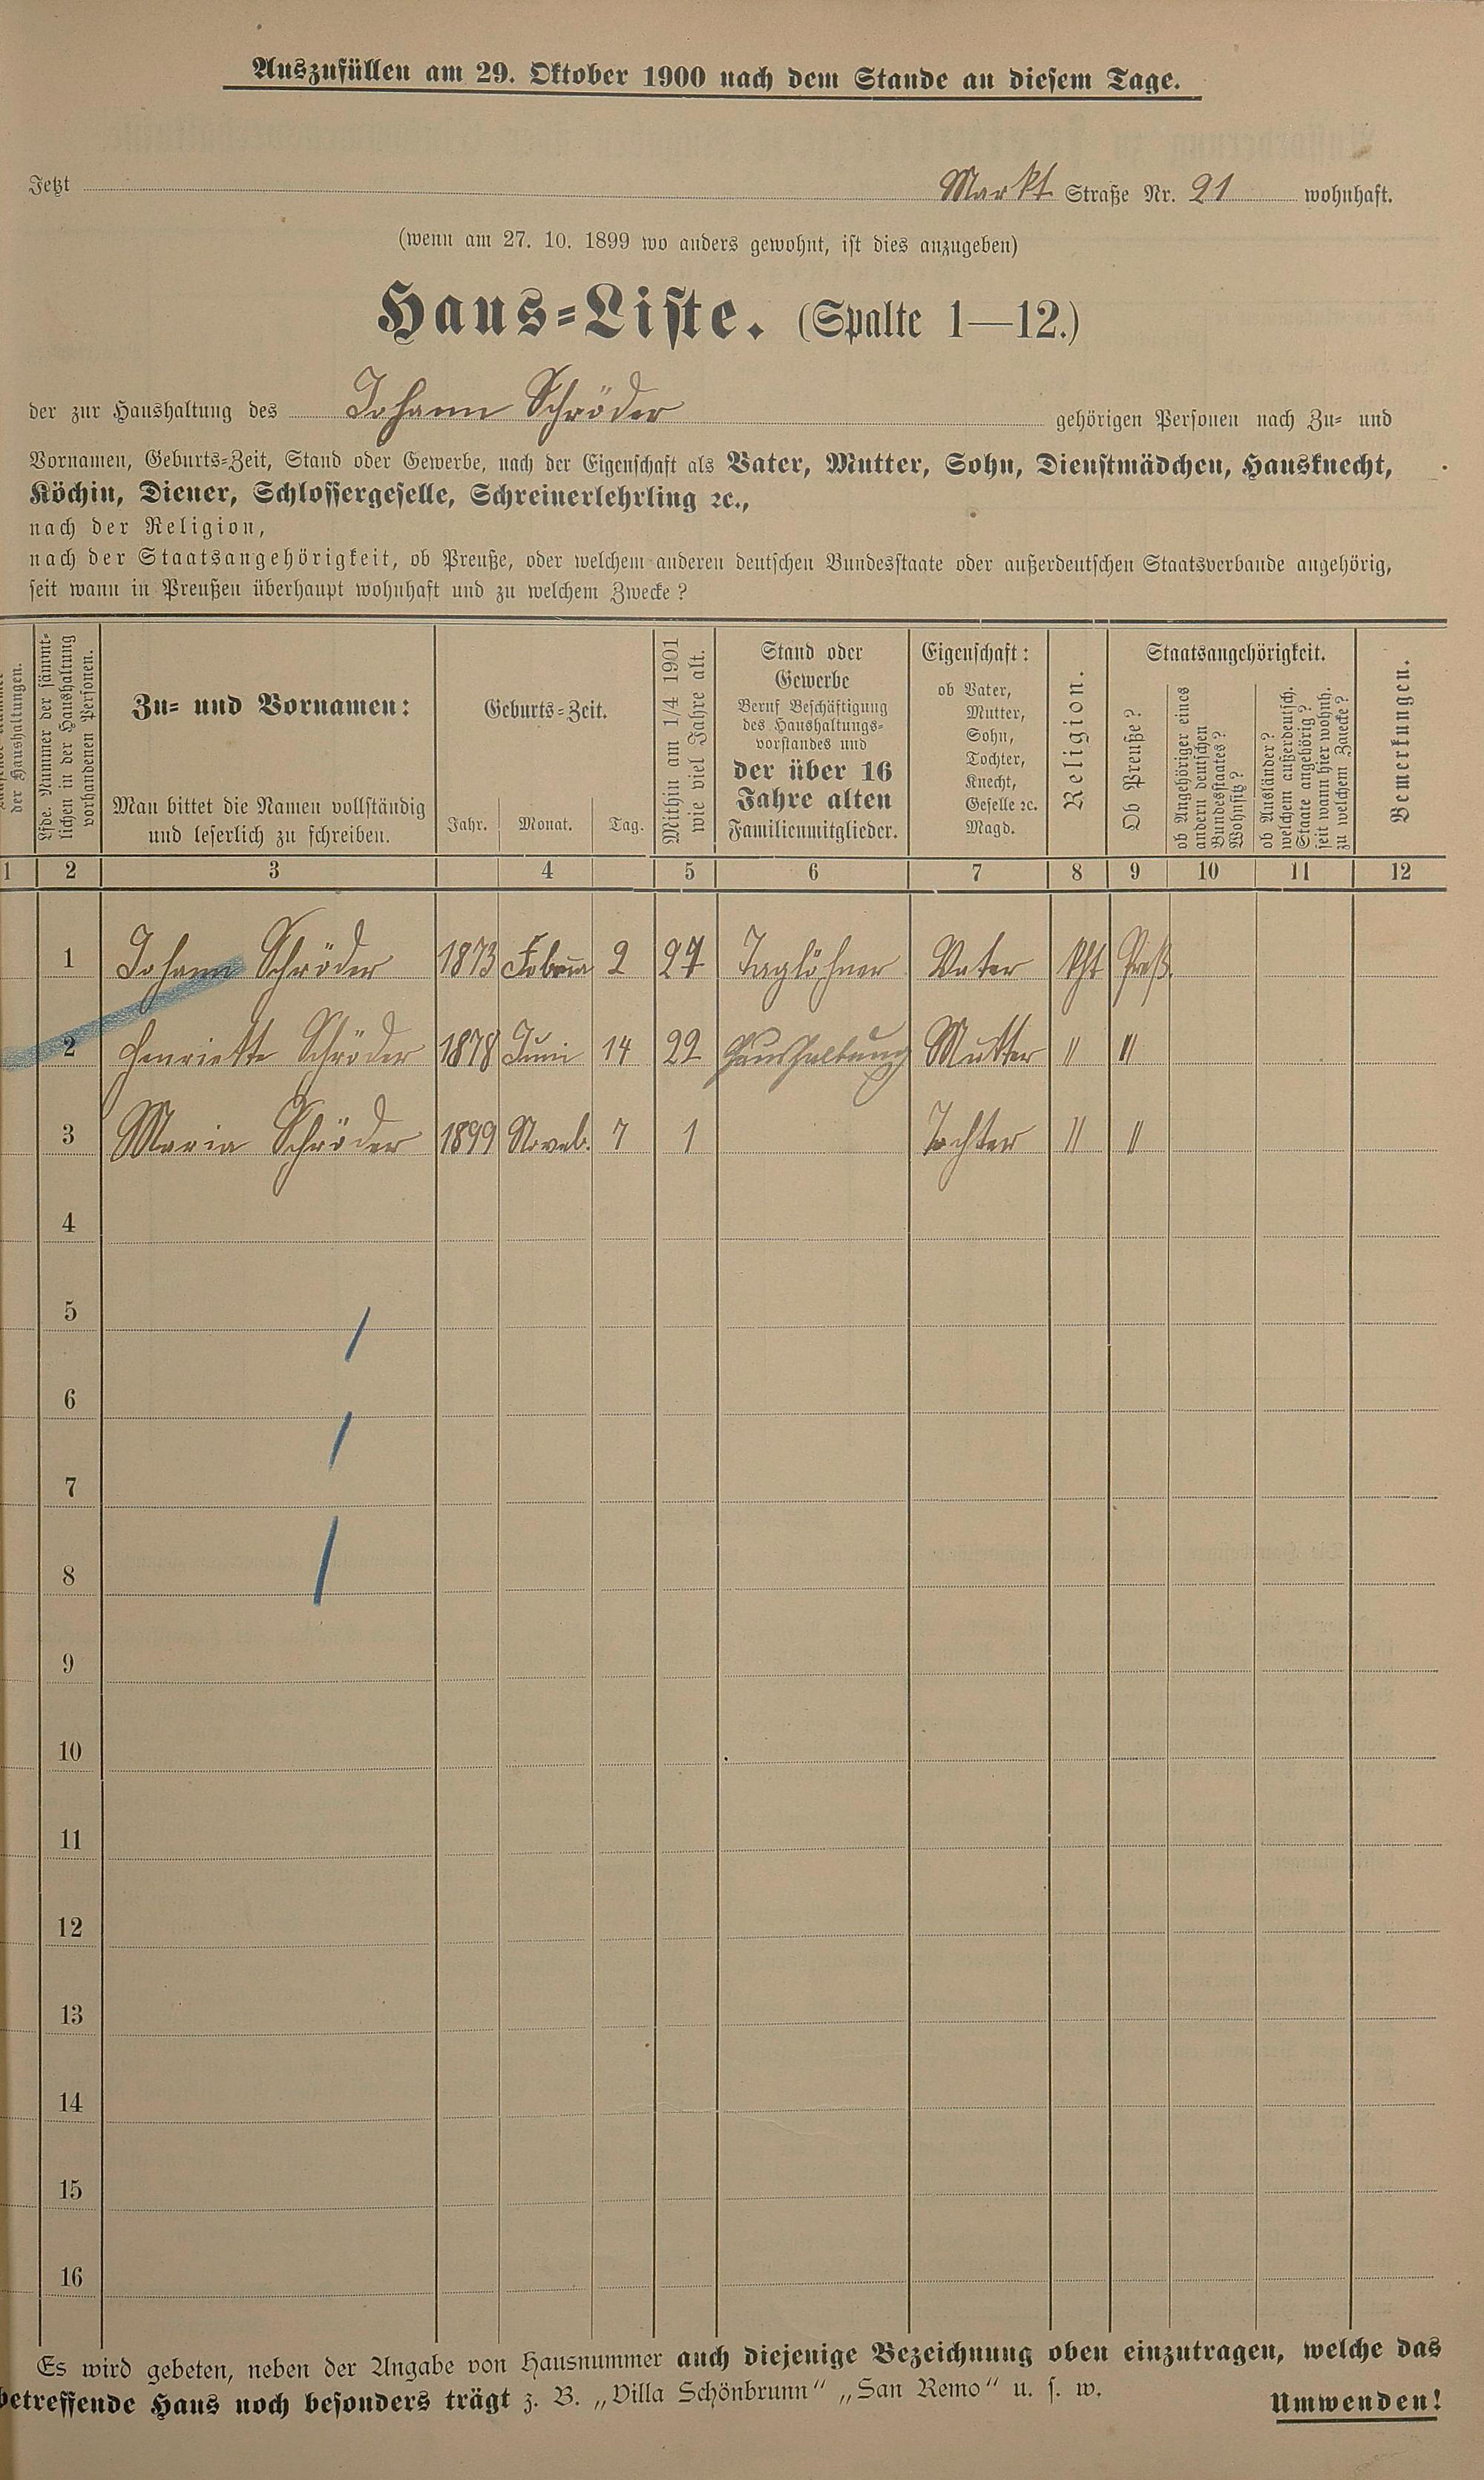 Auszufüllen am 29. Oktober 1900 nach dem Stande an diesem Tage.
Jetzt Markt Straße Nr. 21 wohnhaft.
(wenn am 27. 10. 1899 wo anders gewohnt, ist dies anzugeben)
Haus-Liste. (Spalte 1—12.)
der zur Haushaltung des Johann Schröder gehörigen Personen nach Zu- und
Vornamen, Geburts-Zeit, Stand oder Gewerbe, nach der Eigenschaft als Vater, Mutter, Sohn, Dienstmädchen, Hausknecht,
Köchin, Diener, Schlossergeselle, Schreinerlehrling ꝛc.,
nach der Religion,
nach der Staatsangehörigkeit, ob Preuße, oder welchem anderen deutschen Bundesstaate oder außerdeutschen Staatsverbande angehörig,
seit wann in Preußen überhaupt wohnhaft und zu welchem Zwecke?
der Haushaltungen.
Lfde. Nummer der sämmt-
lichen in der Haushaltung
vorhandenen Personen.
Zu- und Vornamen:
Man bittet die Namen vollständig
und leserlich zu schreiben.
Geburts-Zeit.
Jahr. Monat. Tag.
Mithin am 1/4 1901
wie viel Jahre alt.
Stand oder
Gewerbe
Beruf Beschäftigung
des Haushaltungs-
vorstandes und
der über 16
Jahre alten
Familienmitglieder.
Eigenschaft:
ob Vater,
Mutter,
Sohn,
Tochter,
Knecht,
Geselle ꝛc.
Magd.
Religion.
Staatsangehörigkeit.
Ob Preuße?
ob Angehöriger eines
andern deutschen
Bundesstaates?
Wohnsitz?
ob Ausländer?
welchem außerdeutsch.
Staate angehörig?
seit wann hier wohnh.
zu welchem Zwecke?
Bemerkungen.
1 2 3 4 5 6 7 8 9 10 11 12
1 Johann Schröder 1873 Februa 2 27 Taglöhner Vater kht Preß.
2 Henriette Schröder 1878 Juni 14 22 Haushaltung Mutter " "
3 Maria Schröder 1899 Noveb. 7 1 Tochter " "
4
5
6
7
8
9
10
11
12
13
14
15
16
Es wird gebeten, neben der Angabe von Hausnummer auch diejenige Bezeichnung oben einzutragen, welche das
betreffende Haus noch besonders trägt z. B. „Villa Schönbrunn“ „San Remo“ u. s. w.
Umwenden!